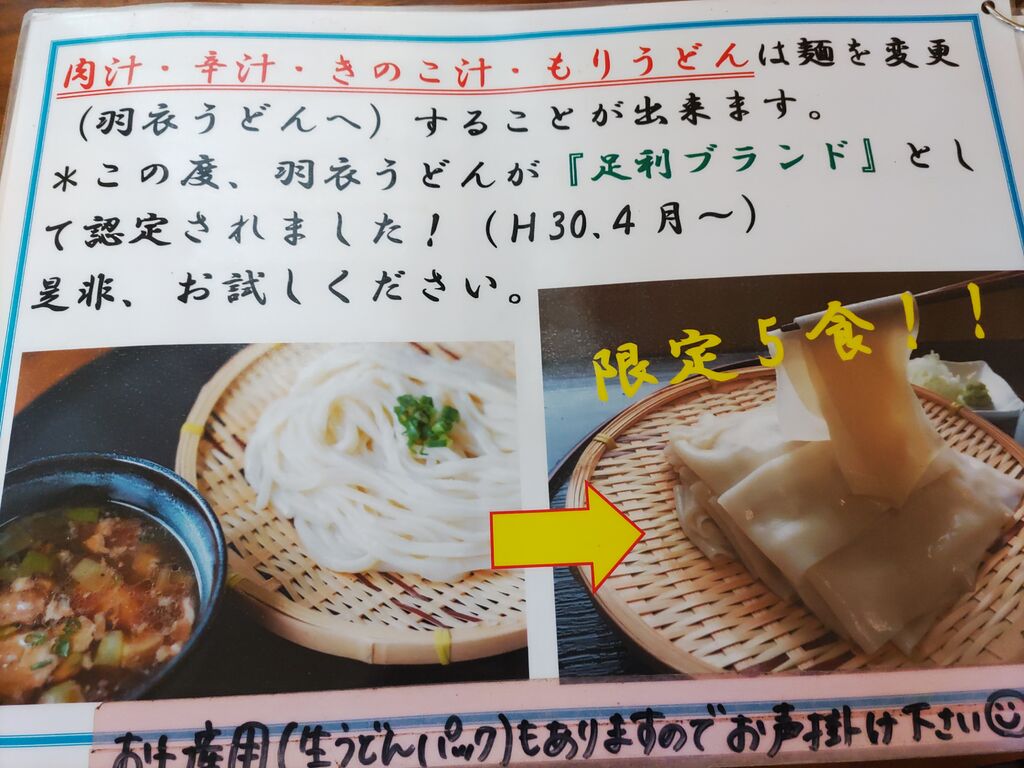 肉汁・辛汁・きのこ汁・もりうどんは麺を変更
（羽衣うどんへ）することが出来ます。
＊この度、羽衣うどんが『足利ブランド』とし
て認定されました！（H30.4月～）
是非、お試しください。
限定5食！！
お土産用(生うどんパック)もありますのでお声掛け下さい